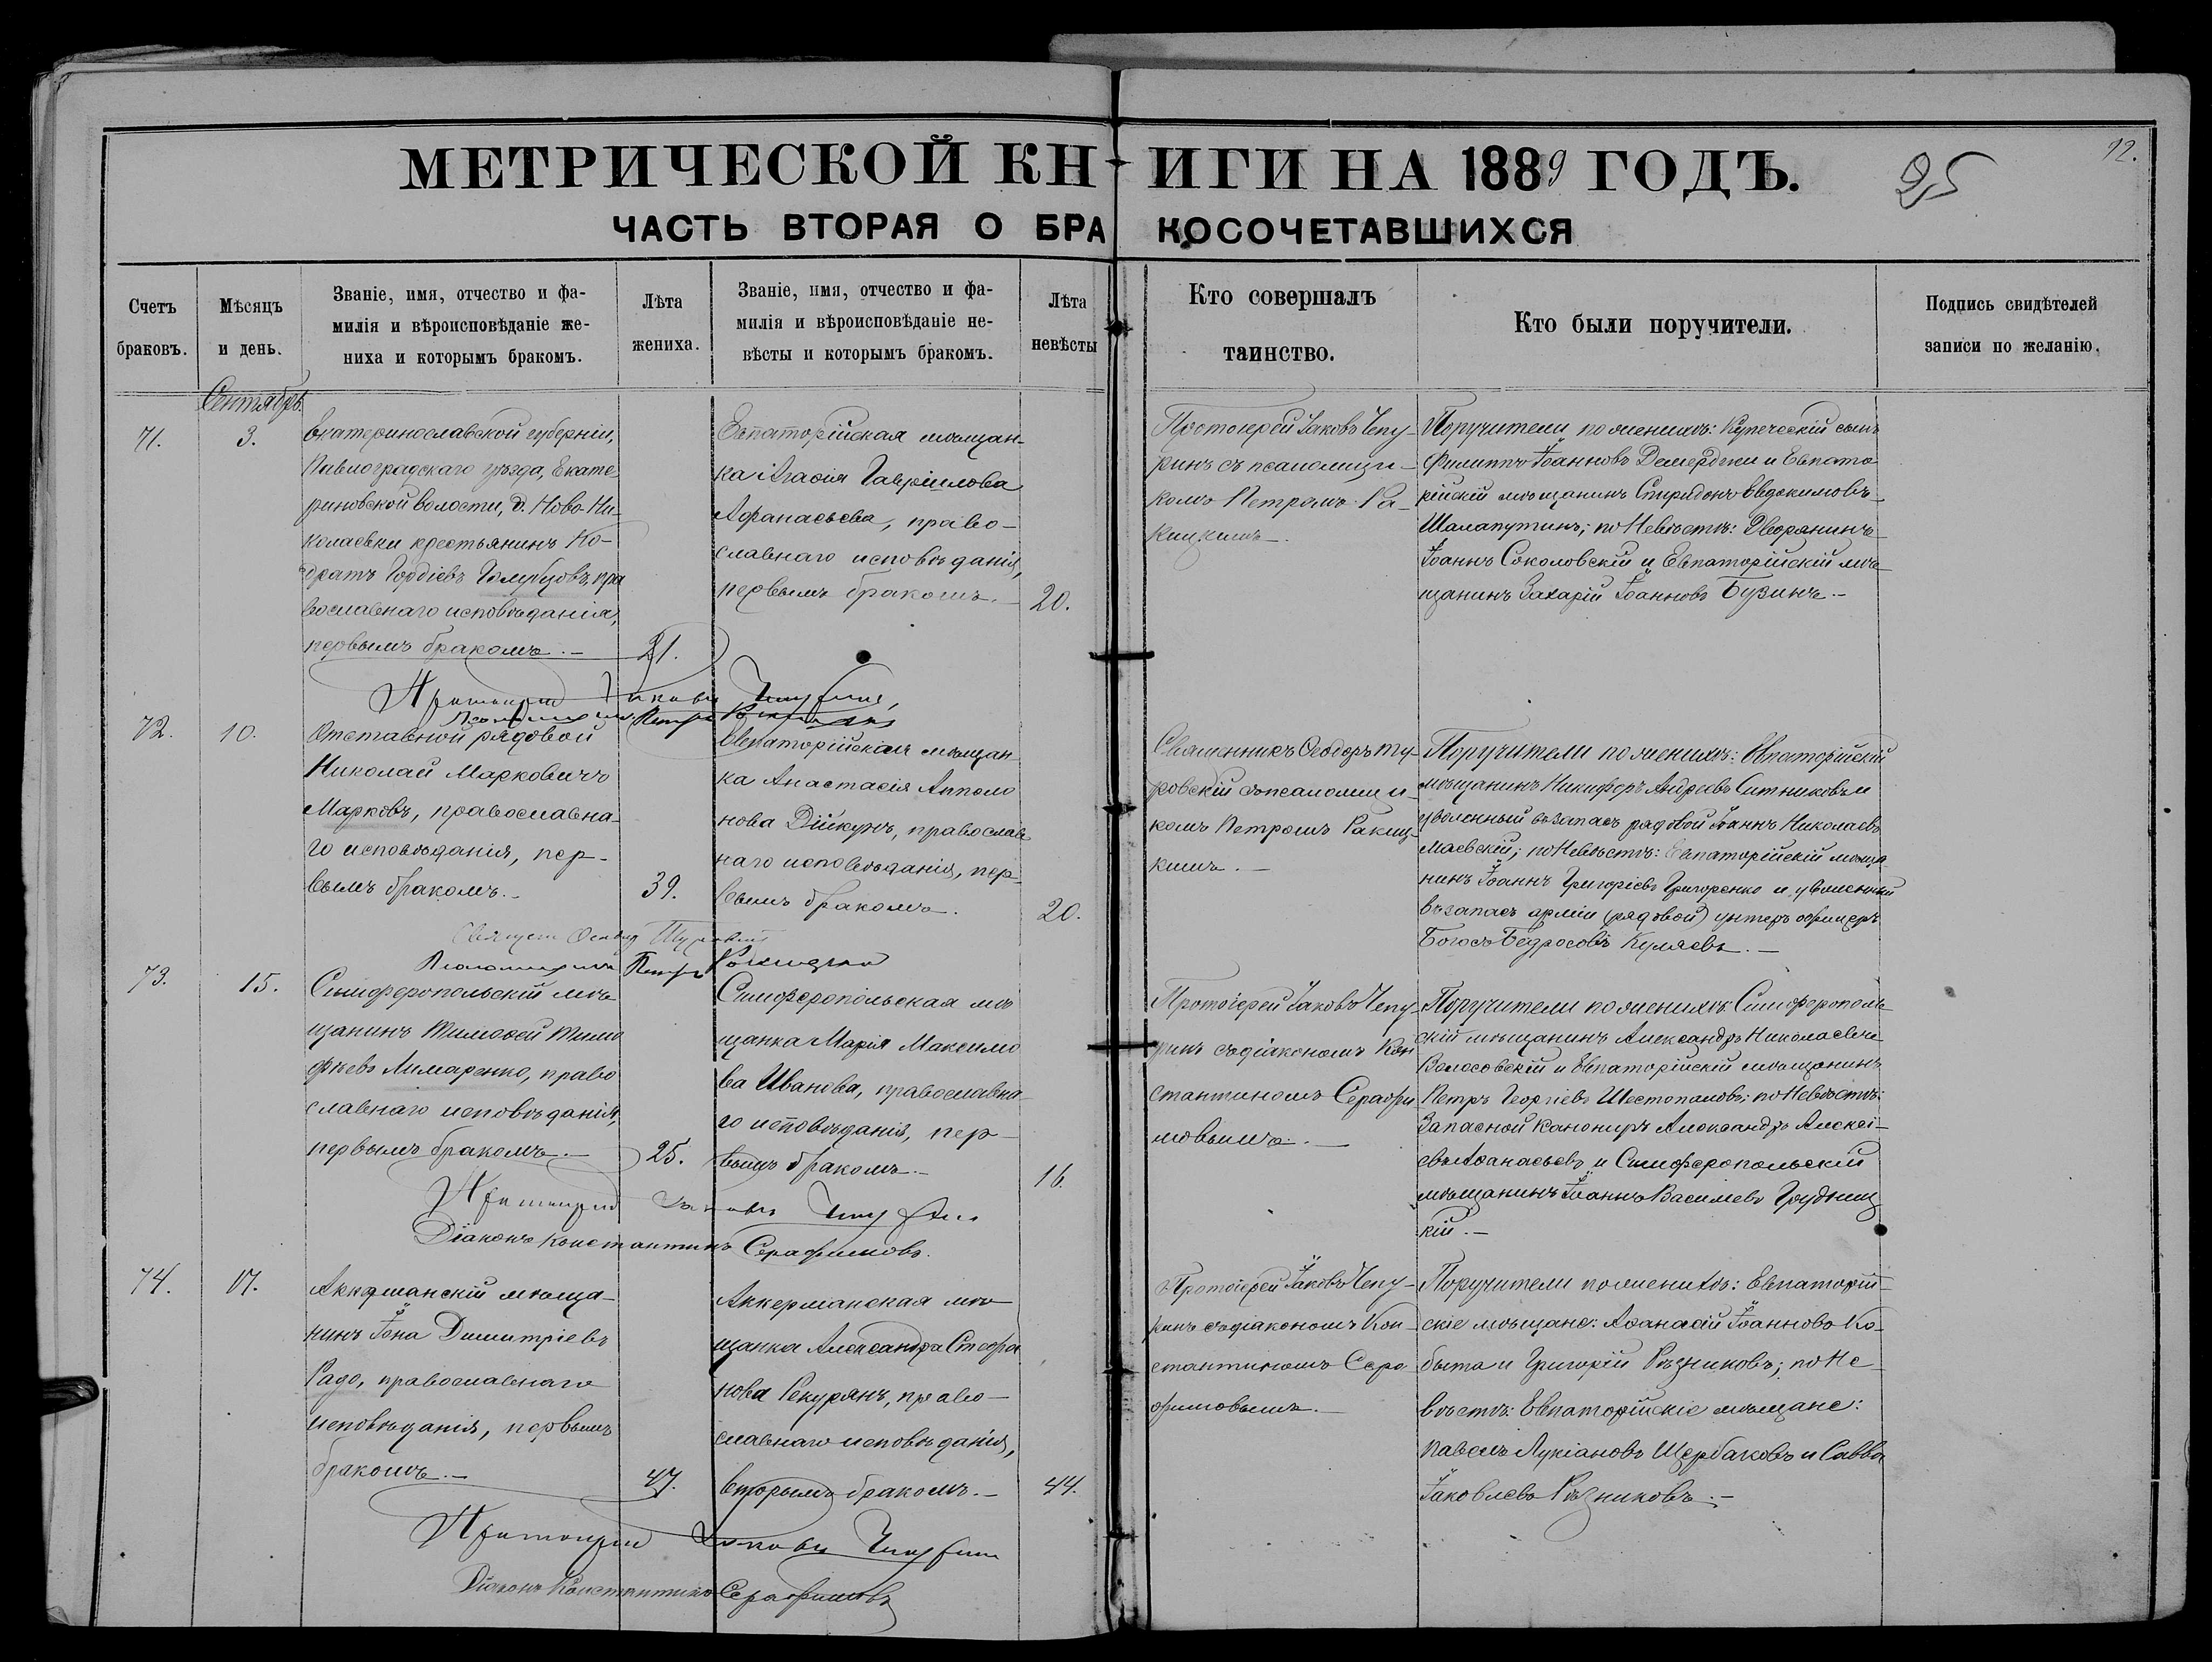 МЕТРИЧЕСКОЙ КНИГИ НА 1889 ГОДЪ.
25
92.
ЧАСТЬ ВТОРАЯ О БРАКОСОЧЕТАВШИХСЯ
Счетъ
браковъ.
Мѣсяцъ
и день.
Званіе, имя, отчество и фа-
милія и вѣроисповѣданіе же-
ниха и которымъ бракомъ.
Лѣта
жениха.
Званіе, имя, отчество и фа-
милія и вѣроисповѣданіе не-
вѣсты и которымъ бракомъ.
Лѣта
невѣсты
Кто совершалъ
таинство.
Кто были поручители.
Подпись свидѣтелей
записи по желанію.
Сентябрь
71.
3.
Екатеринославской губерніи,
Павлоградскаго уѣзда, Екате
риновской волости, д. Ново-Ни-
колаевки крестьянинъ Ко-
дратъ Гордіевъ Голубцовъ, пра
вославнаго исповѣданія,
первымъ бракомъ.—
21.
Евпаторійская мѣщан-
ка Агаѳія Гавріилова
Афанасьева, право-
славнаго исповѣданія,
первымъ бракомъ.—
20.
Протоіерей Іаковъ Чепу-
ринъ съ псаломщи-
комъ Петромъ Ра-
кицкимъ.
Поручители по женихѣ: Купеческій сынъ
Филиппъ Іоанновъ Демерджи и Евпато
рійскій мѣщанинъ Спиридонъ Евдокимовъ
Шалапутинъ; по Невѣстѣ: Дворянинъ
Іоаннъ Соколовскій и Евпаторійскій мѣ-
щанинъ Захарій Іоанновъ Бузинъ.—
Протоіерей Іаковъ Чепуринъ,
Псаломщикъ Петръ Ракицкій
72.
10.
Отставной рядовой
Николай Марковичъ
Марковъ, православна-
го исповѣданія, пер-
вымъ бракомъ.—
39.
Евпаторійская мѣщан-
ка Анастасія Апполо
нова Дійкунъ, православ
наго исповѣданія, пер-
вымъ бракомъ.
20.
Священникъ Ѳеодоръ Ту-
ровскій съ псаломщи-
комъ Петромъ Ракиц-
кимъ.—
Поручители по женихѣ: Евпаторійскій
мѣщанинъ Никифоръ Андреевъ Ситниковъ и
уволенный въ запасъ рядовой Іоаннъ Николаевъ
Маевскій; по Невѣстѣ: Евпаторійскій мѣща
нинъ Іоаннъ Григоріевъ Григоренко и уволенный
въ запасъ арміи (рядовой) унтеръ офицеръ
Богосъ Бедросовъ Куляевъ.—
Священ Ѳеодор Туровскій
Псаломщикъ Петръ Ракицкій
73.
15.
Симферопольскій мѣ-
щанинъ Тимоѳей Тимо
фѣевъ Лимаренко, право
славнаго исповѣданія,
первымъ бракомъ.—
25.
Симферопольская мѣ
щанка Марія Максимо
ва Иванова, православна-
го исповѣданія, пер-
вымъ бракомъ.—
16.
Протоіерей Іаковъ Чепу-
ринъ съ діакономъ Кон
стантиномъ Серафи
мовымъ.—
Поручители по женихѣ: Симферополь-
скій мѣщанинъ Александръ Николаевъ
Волосовскій и Евпаторійскій мѣщанинъ
Петръ Георгіевъ Шестопаловъ; по Невѣстѣ:
Запасной Канониръ Александръ Алексі-
евъ Аѳанасьевъ и Симферопольскій
мѣщанинъ Іоаннъ Василіевъ Грудниц
кій.—
Протоіерей Іаковъ Чепуринъ
Діаконъ Константинъ Серафимовъ.
74.
17.
Аккерманскій мѣща-
нинъ Іона Димитріевъ
Радо, православнаго
исповѣданія, первымъ
бракомъ.—
47.
Аккерманская мѣ
щанка Александра Стефа
нова Рекурянъ, право-
славнаго исповѣданія,
вторымъ бракомъ.—
44.
Протоіерей Іаковъ Чепу-
ринъ съ діакономъ Кон-
стантиномъ Сера-
фимовымъ.—
Поручители по женихѣ: Евпаторій-
скіе мѣщане: Аѳанасій Іоанновъ Ко-
быта и Григорій Рѣзниковъ; по Не-
вѣстѣ: Евпаторійскіе мѣщане:
Павелъ Лукіановъ Щербаковъ и Савва
Іаковлевъ Рѣзниковъ.—
Протоіерей Іаковъ Чепуринъ
Діаконъ Константинъ Серафимовъ